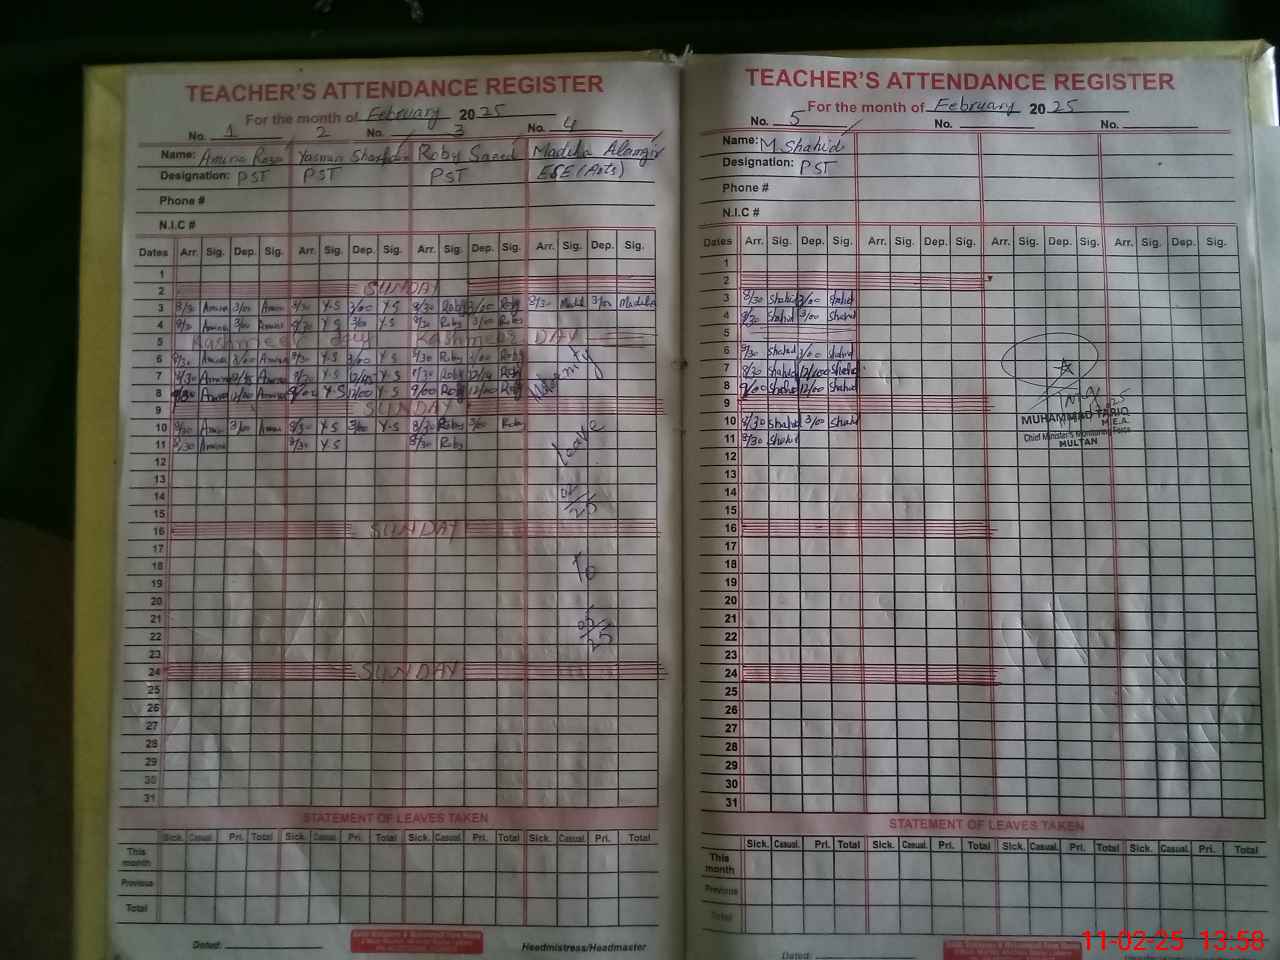 TEACHER'S ATTENDANCE REGISTER
For the month of February 2025
No. 1 2 No. 3 No. 4
Name: Amina Yasmin Roby Saeed Madiha Alamgir
Designation: PST PST PST ESE (Arts)
Phone #
N.I.C #
Dates Arr. Sig. Dep. Sig. Arr. Sig. Dep. Sig. Arr. Sig. Dep. Sig. Arr. Sig. Dep. Sig.
1
2 SUNDAY
3 8/30 Amina 3/00 Amina 8/30 Y-S 3/00 Y-S 8/30 Roby 3/00 Roby 8/30 Madi 3/00 Madiha
4 8/30 Amina 3/00 Amina 8/30 Y-S 3/00 Y-S 8/30 Roby 3/00 Roby
5 Kashmeer day Kashmeer DAY
6 8/30 Amina 3/00 Amina 8/30 Y-S 3/00 Y-S 8/30 Roby 3/00 Roby
7 8/30 Amina Amina 8/30 Y-S Y-S 8/30 Roby Roby
8 Amina 12/00 Amina 9/00 Y-S 12/00 Y-S 9/00 Roby 12/00 Roby
9 SUNDAY
10 8/30 Amina 3/00 Amina 8/30 Y-S 3/00 Y-S 8/30 Roby 3/00 Roby
11 8/30 Amina 8/30 Y-S 8/30 Roby
12
13
14
15
16 SUNDAY
17
18
19
20
21
22
23
24 SUNDAY
25
26
27
28
29
30
31
Maternity
leave
02/25
To
05/25
STATEMENT OF LEAVES TAKEN
Sick. Casual. Pri. Total Sick. Casual. Pri. Total Sick. Casual. Pri. Total Sick. Casual. Pri. Total
This month
Previous
Total
Dated: Headmistress/Headmaster
TEACHER'S ATTENDANCE REGISTER
For the month of February 2025
No. 5 No. No.
Name: M. Shahid
Designation: PST
Phone #
N.I.C #
Dates Arr. Sig. Dep. Sig. Arr. Sig. Dep. Sig. Arr. Sig. Dep. Sig. Arr. Sig. Dep. Sig.
1
2
3 8/30 Shahid 3/00 Shahid
4 8/30 Shahid 3/00 Shahid
5
6 8/30 Shahid 3/00 Shahid
7 8/30 Shahid 12/00 Shahid
8 9/00 Shahid 12/00 Shahid
9
10 8/30 Shahid 3/00 Shahid
11 8/30 Shahid
12
13
14
15
16
17
18
19
20
21
22
23
24
25
26
27
28
29
30
31
MUHAMMAD TARIQ
M.E.A.
Chief Minister's Monitoring Force
MULTAN
STATEMENT OF LEAVES TAKEN
Sick. Casual. Pri. Total Sick. Casual. Pri. Total Sick. Casual. Pri. Total Sick. Casual. Pri. Total
This month
Previous
Total
Dated:
11-02-25 13:58